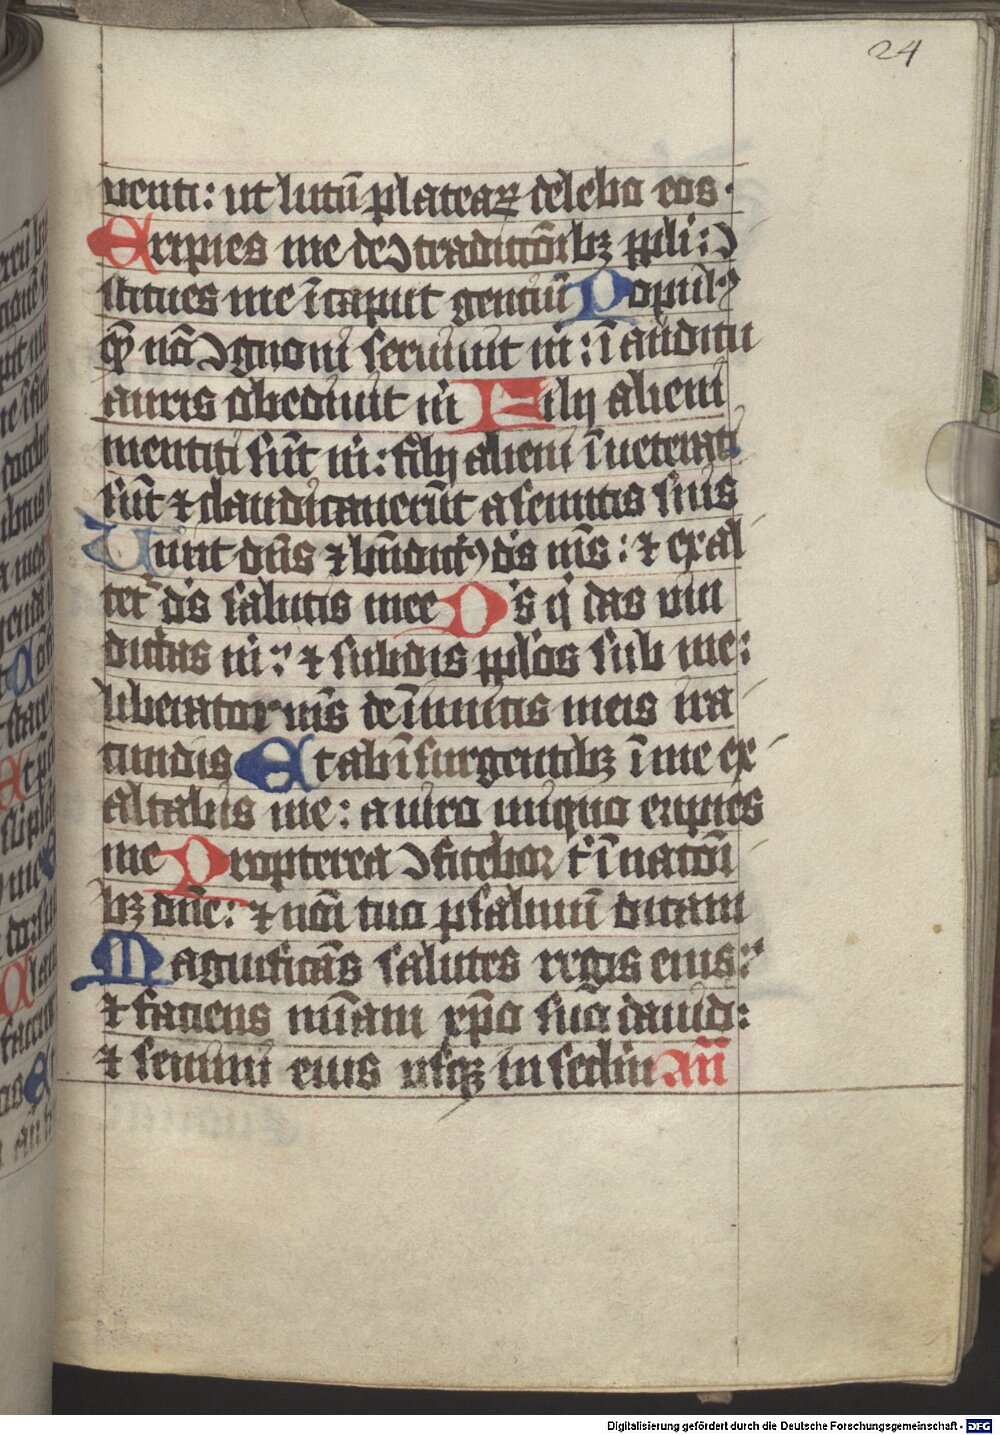 24
uenti: ut lutū plateaꝝ delebo eos·
Eripies me de ↄtradictōibꝫ ppli: ↄ
stitues me ī caput gentiū Populꝰ
qͥ nō ↄgnoui seruiuit m̄: ī auditu
auris obediuit m̄ Filij alieni
mentiti sūt m̄: filij alieni īueterati
sūt ⁊ claudicauerūt a semitis suis
Uiuit dn̄s ⁊ bn̄dictꝰ ds̄ m̄s: ⁊ exal
tet᷑ ds̄ salutis mee Ds̄ qͥ das vin
dictas m̄: ⁊ subdis pplōs sub me:
liberator m̄s de īimicis meis ira
cundis Et ab īsurgentibꝫ ī me ex
altabis me: a uiro iniquo eripies
me Propterea ↄfitebor t̄ ī natōi
bꝫ dn̄e: ⁊ nōi tuo psalmū dicam
Magnificās salutes regis eius:
⁊ faciens mīam xp̄o suo dauid:
⁊ semini eius usqꝫ in sec̄lm Añ
Digitalisierung gefördert durch die Deutsche Forschungsgemeinschaft - DFG